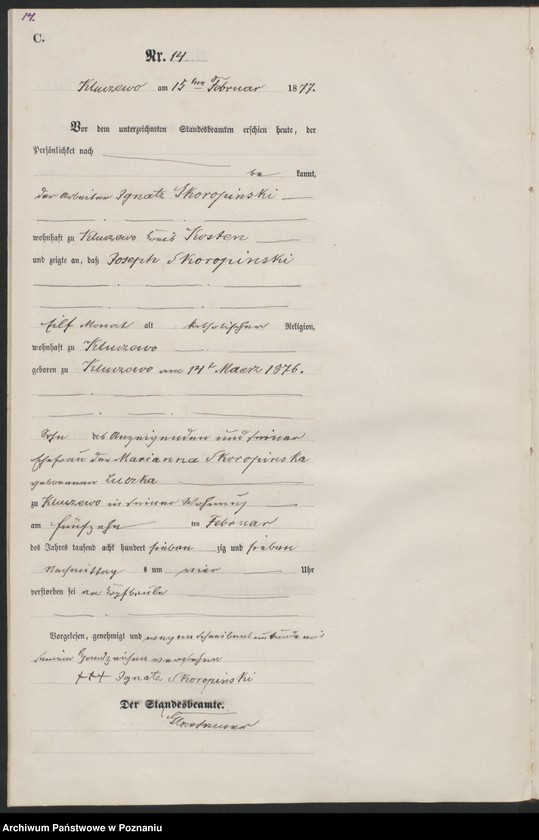 14.
C.
Nr. 14
Kluczewo am 15ten Februar 1877.
Vor dem unterzeichneten Standesbeamten erschien heute, der
Persönlichkeit nach
be kannt,
der Arbeiter Ignatz Skoropinski
wohnhaft zu Kluczewo Kreis Kosten
und zeigte an, daß Joseph Skoropinski
eilf Monat alt katholischer Religion,
wohnhaft zu Kluczewo
geboren zu Kluczewo am 14t Maerz 1876.
Sohn des Anzeigenden und seiner
Ehefrau der Marianna Skoropinska
geborenen Luczka
zu Kluczewo in seiner Wohnung
am fünfzehn ten Februar
des Jahres tausend acht hundert sieben zig und sieben
Nachmittag s um vier Uhr
verstorben sei an
Vorgelesen, genehmigt und wegen Schreibensunkunde mit
seinem Handzeichen versehen
+++ Ignatz Skoropinski
Der Standesbeamte.
Archiwum Państwowe w Poznaniu